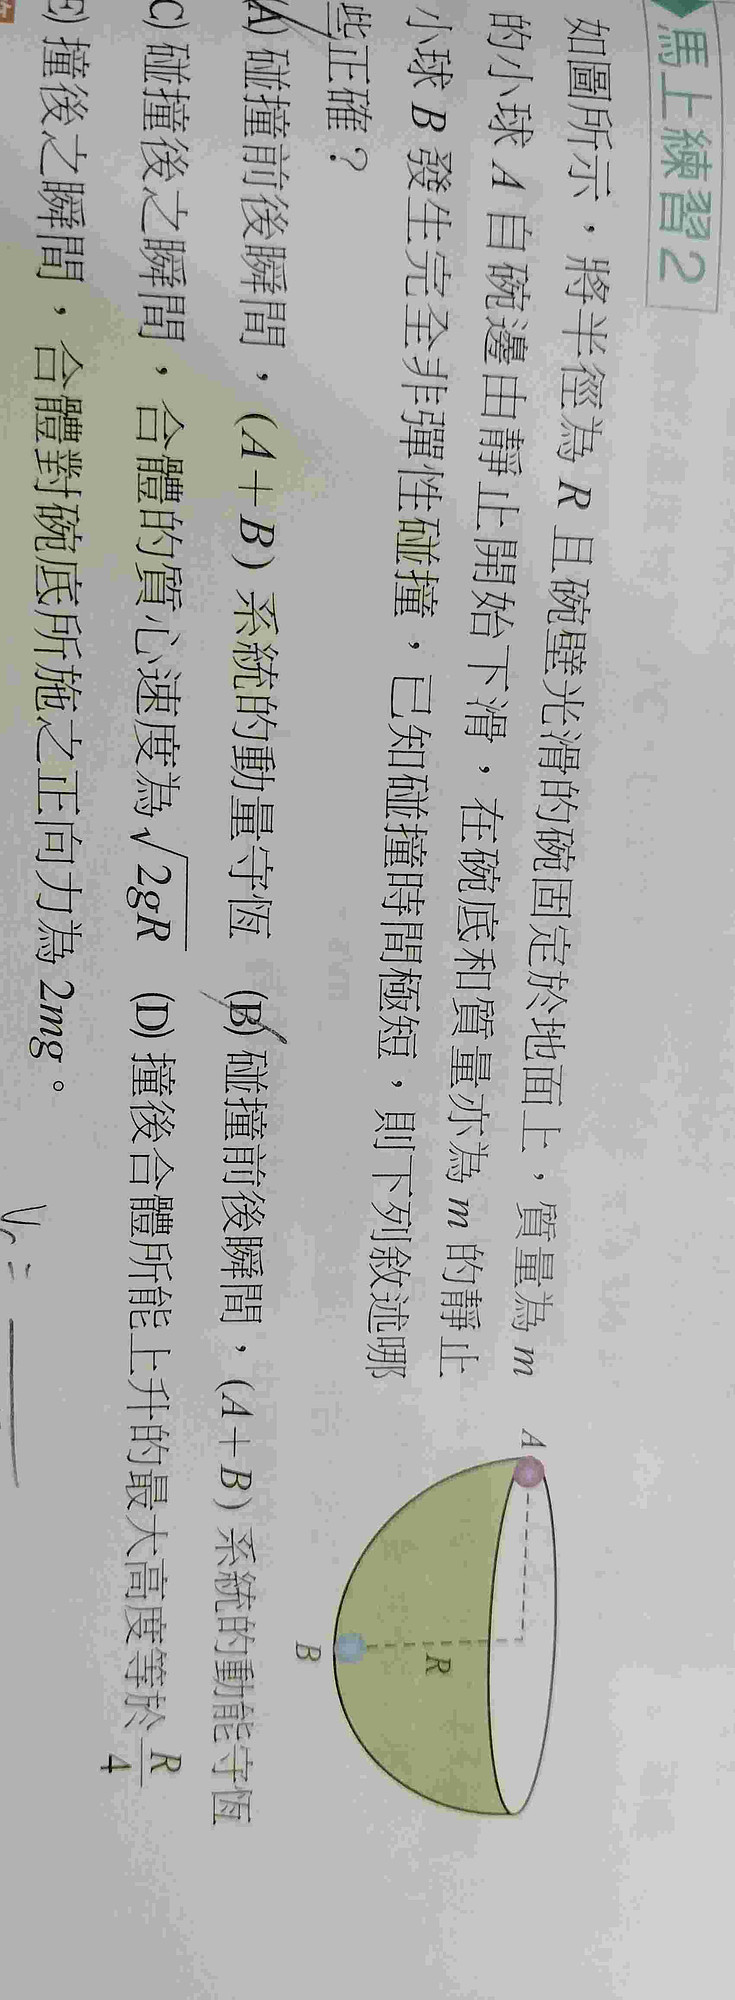 馬上練習2
如圖所示，將半徑為 R 且碗壁光滑的碗固定於地面上，質量為 m
的小球 A 自碗邊由靜止開始下滑，在碗底和質量亦為 m 的靜止
小球 B 發生完全非彈性碰撞，已知碰撞時間極短，則下列敘述哪
些正確？
A
R
B
(A) 碰撞前後瞬間，(A＋B) 系統的動量守恆 (B) 碰撞前後瞬間，(A＋B) 系統的動能守恆
C) 碰撞後之瞬間，合體的質心速度為√2gR (D) 撞後合體所能上升的最大高度等於 R/4
E) 撞後之瞬間，合體對碗底所施之正向力為 2mg。
Vc =